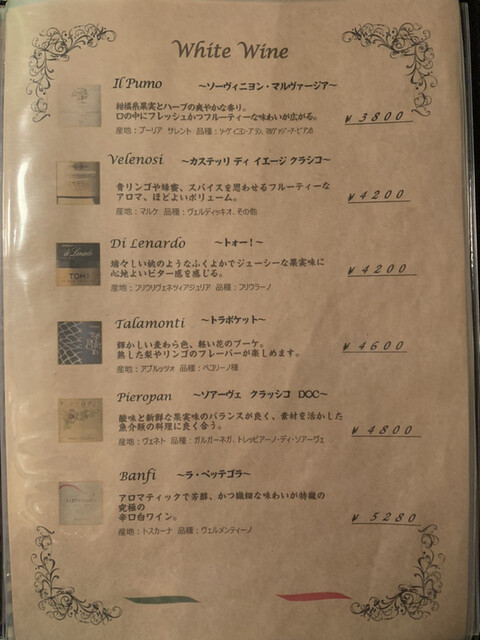 White Wine
Il Pumo ～ソーヴィニヨン・マルヴァージア～
柑橘系果実とハーブの爽やかな香り。
口の中にフレッシュかつフルーティーな味わいが広がる。
¥3800
産地：プーリア サレント 品種：ソーヴィニヨン・ブラン、マルヴァジーア・ビアンカ
Velenosi ～カステッリ ディ イエージ クラシコ～
青リンゴや蜂蜜、スパイスを思わせるフルーティーな
アロマ、ほどよいボリューム。
¥4200
産地：マルケ 品種：ヴェルディッキオ、その他
Di Lenardo ～トォー！～
瑞々しい桃のようなふくよかでジューシーな果実味に
心地よいビター感を感じる。
¥4200
産地：フリウリヴェネツィアジュリア 品種：フリウラーノ
Talamonti ～トラボケット～
輝かしい麦わら色、軽い花のブーケ。
熟した梨やリンゴのフレーバーが楽しめます。
¥4600
産地：アブルッツォ 品種：ペコリーノ種
Pieropan ～ソアーヴェ クラッシコ DOC～
酸味と新鮮な果実味のバランスが良く、素材を活かした
魚介類の料理に良く合う。
¥4800
産地：ヴェネト 品種：ガルガーネガ、トレッビアーノ・ディ・ソアーヴェ
Banfi ～ラ・ペッテゴラ～
アロマティックで芳醇、かつ繊細な味わいが特徴の
究極の
辛口白ワイン。
¥5280
産地：トスカーナ 品種：ヴェルメンティーノ